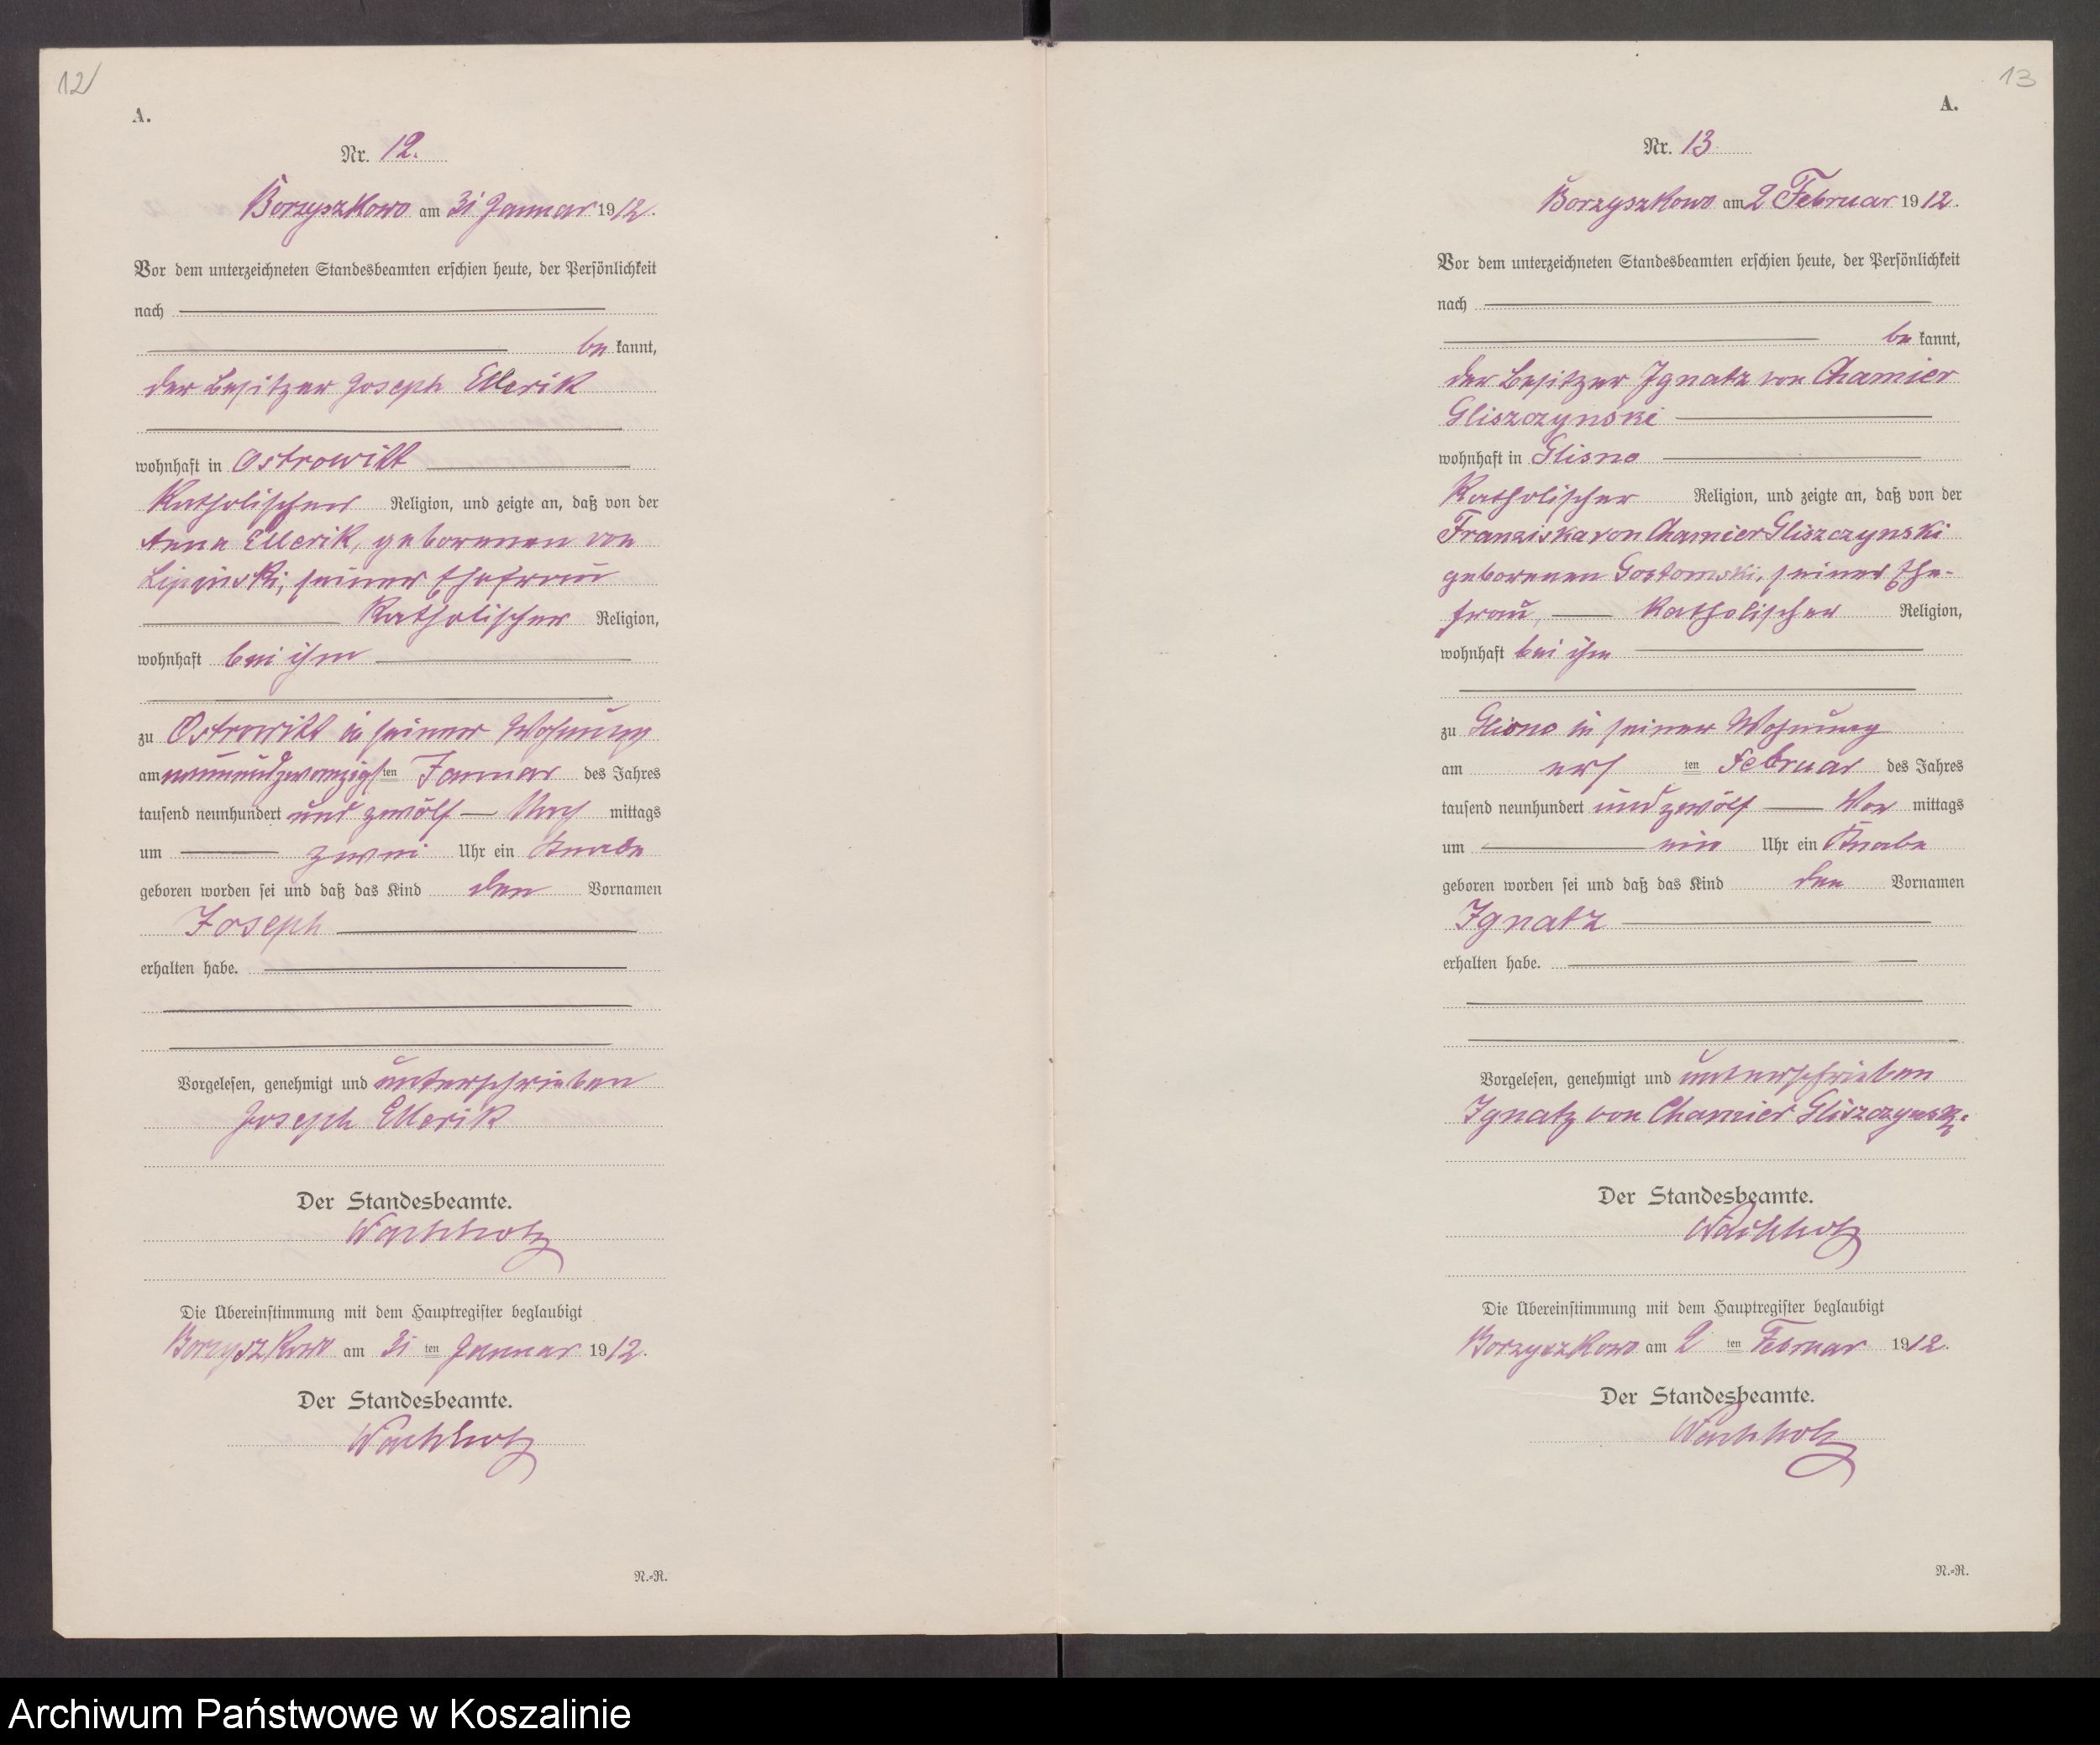 12
A.
Nr. 12.
Borzyszkowo am 31 Januar 1912.
Vor dem unterzeichneten Standesbeamten erschien heute, der Persönlichkeit
nach
be kannt,
der Besitzer Joseph Ellerik
wohnhaft in Ostrowitt
Katholischer Religion, und zeigte an, daß von der
Anna Ellerik, geborenen von
Lipinski, seiner Ehefrau
Katholischer Religion,
wohnhaft bei ihm
zu Ostrowitt in seiner Wohnung
am neunundzwanzigsten Januar des Jahres
tausend neunhundert und zwölf Nach mittags
um zwei Uhr ein Knabe
geboren worden sei und daß das Kind den Vornamen
Joseph
erhalten habe.
Vorgelesen, genehmigt und unterschrieben
Joseph Ellerik
Der Standesbeamte.
Wachholz
Die Übereinstimmung mit dem Hauptregister beglaubigt
Borzyszkowo am 31 ten Januar 1912.
Der Standesbeamte.
Wachholz
N.-R.
13
A.
Nr. 13
Borzyszkowo am 2 Februar 1912.
Vor dem unterzeichneten Standesbeamten erschien heute, der Persönlichkeit
nach
be kannt,
der Besitzer Ignatz von Chamier
Gliszczynski
wohnhaft in Glisno
Katholischer Religion, und zeigte an, daß von der
Franziska von Chamier Gliszczynski
geborenen Gostomski, seiner Ehe-
frau, Katholischer Religion,
wohnhaft bei ihm
zu Glisno in seiner Wohnung
am ers ten Februar des Jahres
tausend neunhundert und zwölf Vor mittags
um ein Uhr ein Knabe
geboren worden sei und daß das Kind den Vornamen
Ignatz
erhalten habe.
Vorgelesen, genehmigt und unterschrieben
Ignatz von Chamier Gliszczynski.
Der Standesbeamte.
Wachholz
Die Übereinstimmung mit dem Hauptregister beglaubigt
Borzyszkowo am 2 ten Februar 1912.
Der Standesbeamte.
Wachholz
N.-R.
Archiwum Państwowe w Koszalinie